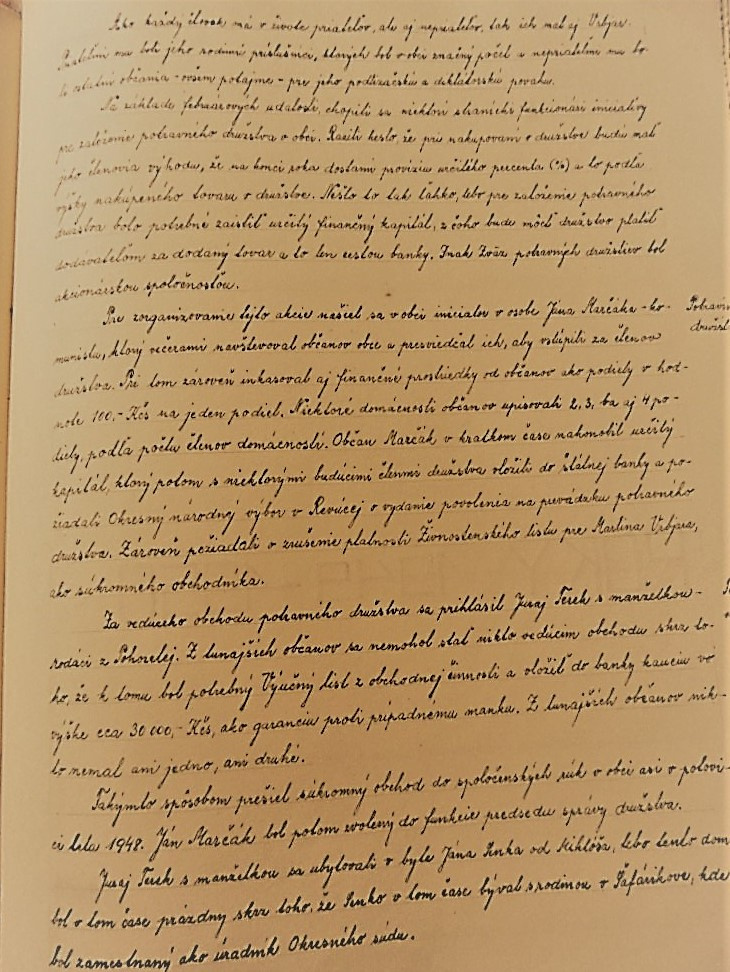 Ako každý človek má v živote priateľov, ale aj nepriateľov, tak ich mal aj Vrbjar.
Priateľmi mu boli jeho rodinní príslušníci, ktorých bol v obci značný počet a nepriateľmi mu bo-
li ostatní občania - ovšem potajme - pre jeho podlizačskú a diktátorskú povahu.
Na základe februárových udalostí, chopili sa niektorí stranícki funkcionári iniciatívy
pre založenie potravného družstva v obci. Razili heslo, že pri nakupovaní v družstve budú mať
jeho členovia výhodu, že na konci roka dostanú províziu určitého percenta (%) a to podľa
výšky nakúpeného tovaru v družstve. Nešlo to tak ľahko, lebo pre založenie potravného
družstva bolo potrebné zaistiť určitý finančný kapitál, z čoho bude môcť družstvo platiť
dodávateľom za dodaný tovar a to len cestou banky. Inak Zväz potravných družstiev bol
akcionárskou spoločnosťou.
Pre zorganizovanie tejto akcie našiel sa v obci iniciátor v osobe Jána Marčáka - ko-
munistu, ktorý večerami navštevoval občanov obce a presviedčal ich, aby vstúpili za členov
družstva. Pri tom zároveň inkasoval aj finančné prostriedky od občanov ako podiely v hod-
note 100,- Kčs na jeden podiel. Niektoré domácnosti občanov upisovali 2, 3, ba aj 4 po-
diely, podľa počtu členov domácností. Občan Marčák v krátkom čase nahonobil určitý
kapitál, ktorý potom s niektorými budúcimi členmi družstva vložili do štátnej banky a po-
žiadali Okresný národný výbor v Revúcej o vydanie povolenia na prevádzku potravného
družstva. Zároveň požiadali o zrušenie platnosti Živnostenského listu pre Martina Vrbjara,
ako súkromného obchodníka.
Potravné
družst
Za vedúceho obchodu potravného družstva sa prihlásil Juraj Terek s manželkou -
rodáci z Pohorelej. Z tunajších občanov sa nemohol stať nikto vedúcim obchodu skrz to-
ho, že k tomu bol potrebný Výučný list z obchodnej činnosti a vložiť do banky kauciu vo
výške cca 30 000,- Kčs, ako garanciu proti prípadnému manku. Z tunajších občanov nik-
to nemal ani jedno, ani druhé.
Takýmto spôsobom prešiel súkromný obchod do spoločenských rúk v obci asi v polovi-
ci leta 1948. Ján Marčák bol potom zvolený do funkcie predsedu správy družstva.
Juraj Terek s manželkou sa ubytovali v byte Jána Sinka od Miklóša, lebo tento dom
bol v tom čase prázdny skrz toho, že Sinko v tom čase býval s rodinou v Šafárikove, kde
bol zamestnaný ako úradník Okresného súdu.